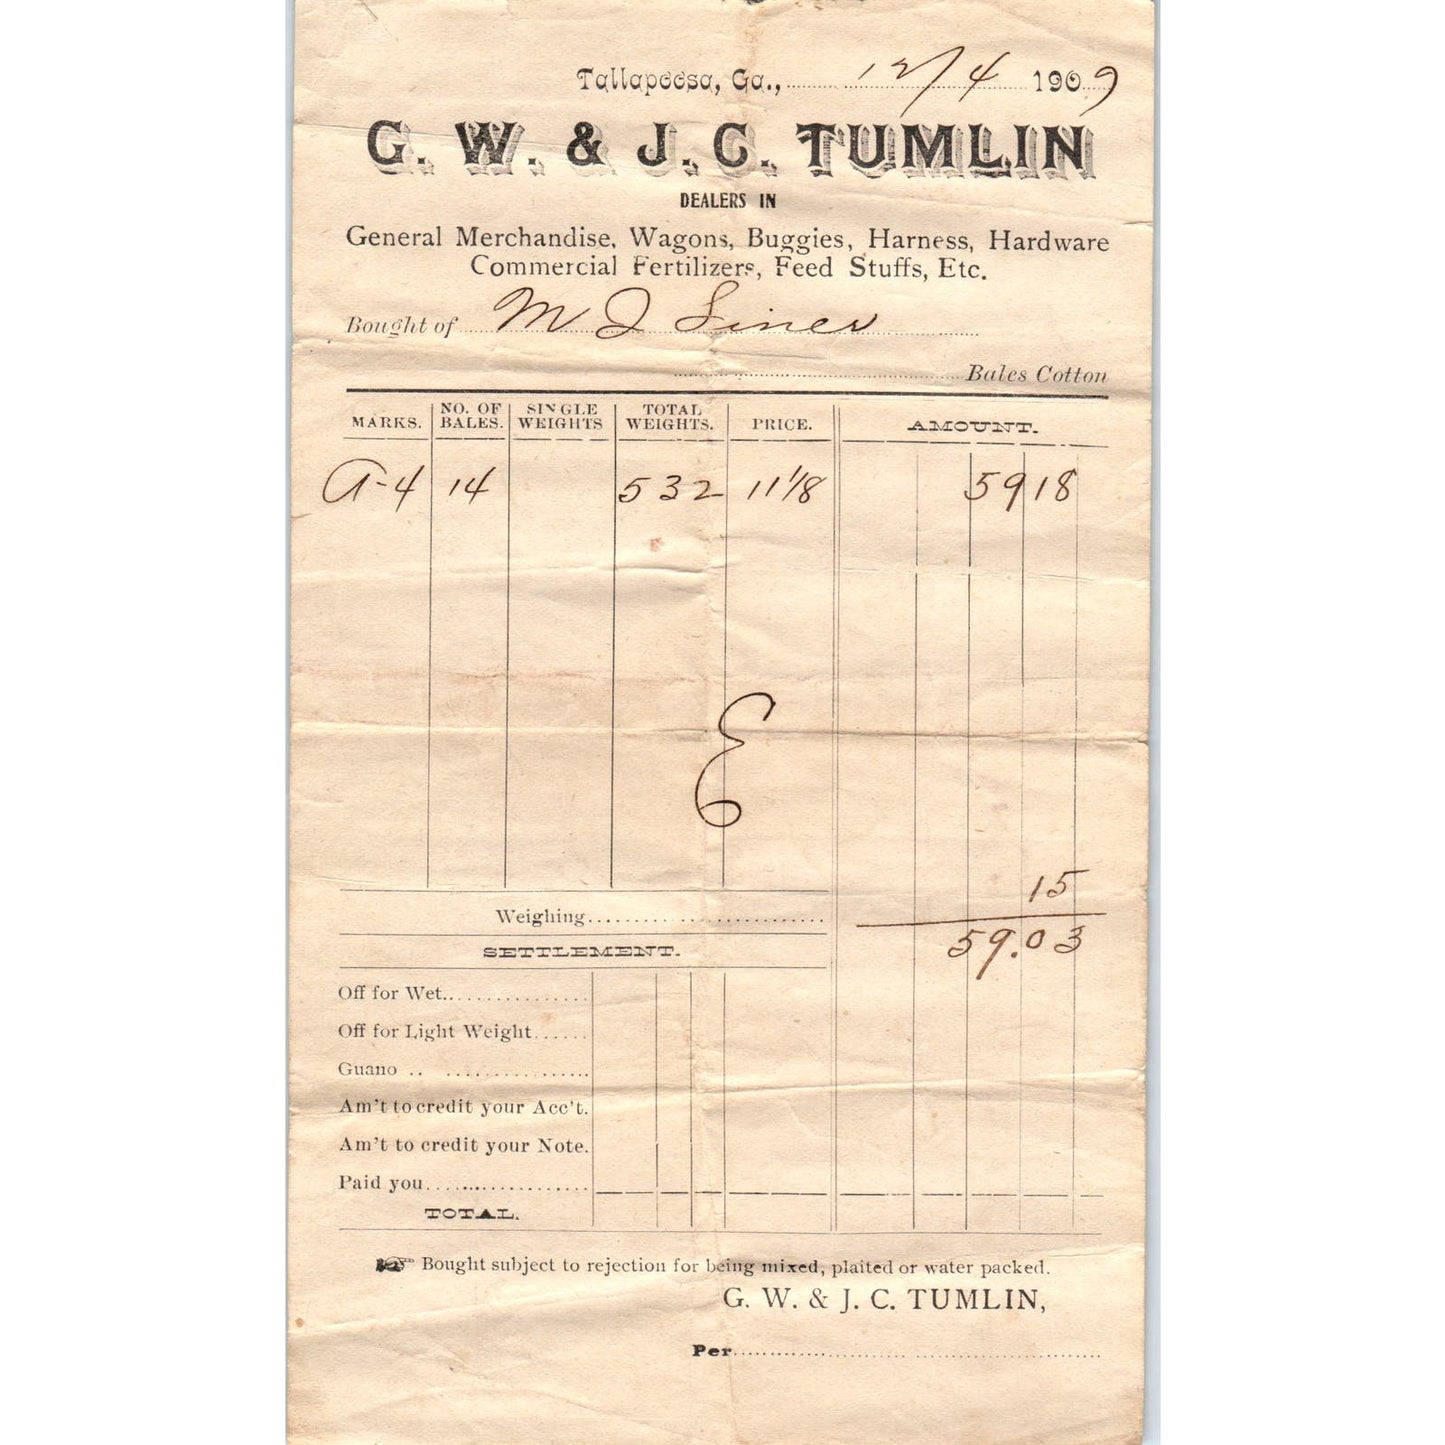 Tallapoosa, Ga., 12/4 1909
G. W. & J. C. TUMLIN
DEALERS IN
General Merchandise, Wagons, Buggies, Harness, Hardware
Commercial Fertilizers, Feed Stuffs, Etc.
Bought of M J Liner
Bales Cotton
MARKS. NO. OF BALES. SINGLE WEIGHTS TOTAL WEIGHTS. PRICE. AMOUNT.
A-4 14 532 11 1/8 59 18
E
15
Weighing
59.03
SETTLEMENT.
Off for Wet
Off for Light Weight
Guano
Am't to credit your Acc't.
Am't to credit your Note.
Paid you
TOTAL.
☞ Bought subject to rejection for being mixed, plaited or water packed.
G. W. & J. C. TUMLIN,
Per